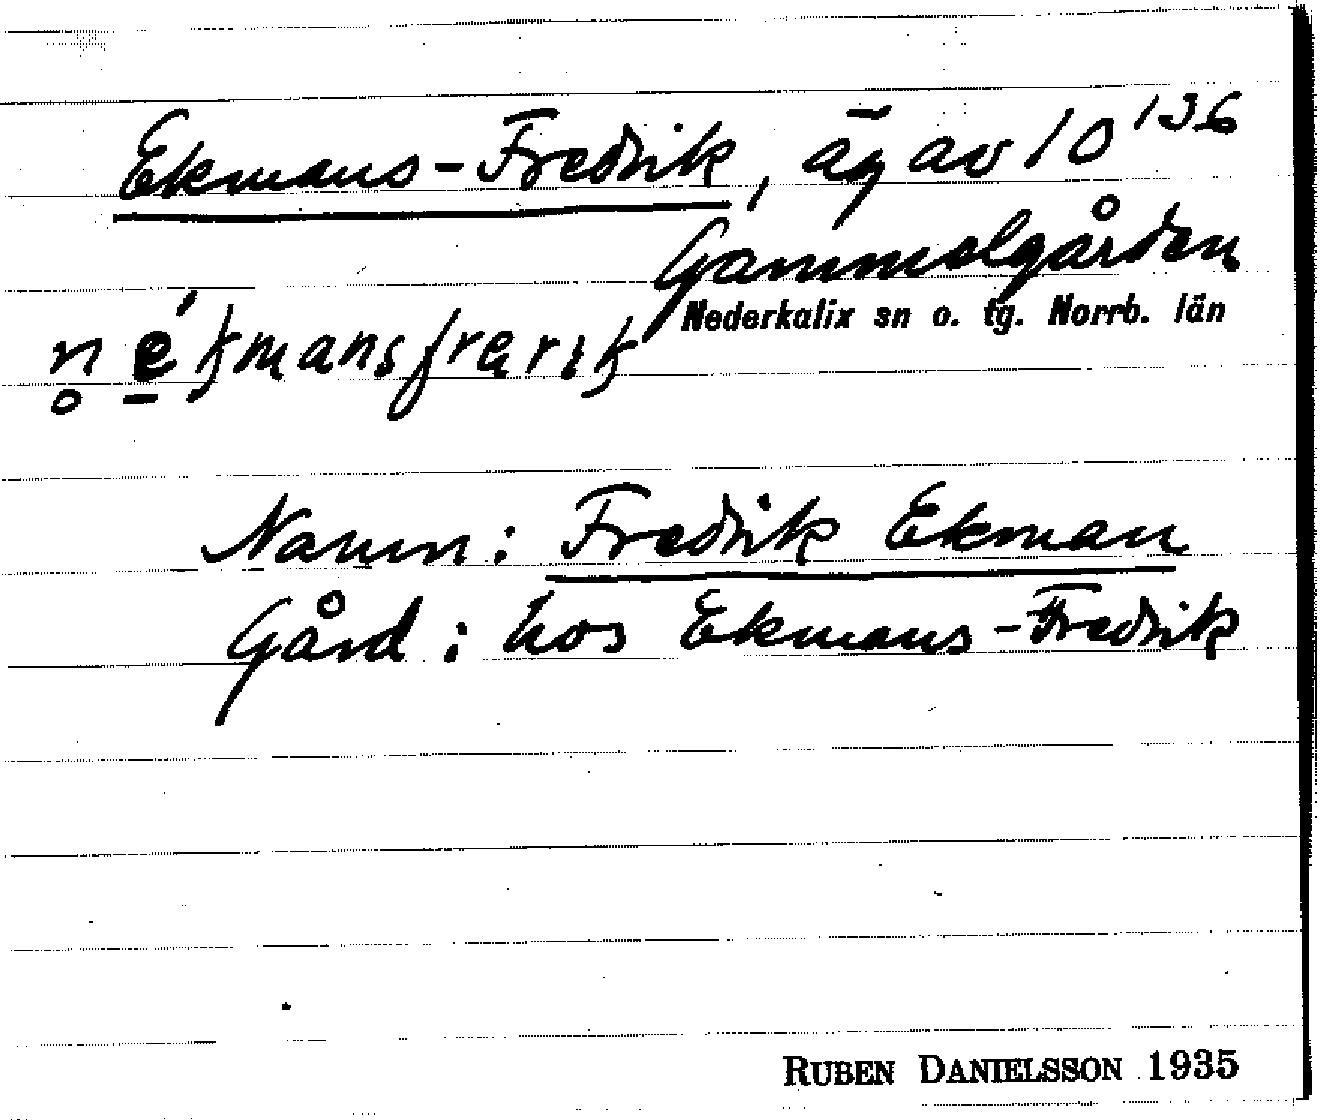 Ekmans-Fredrik, äg av 10 136
Gammelgården
Nederkalix sn o. tg. Norrb. län
n̥ é̱kmansfrerik
Namn: Fredrik Ekman
Gård: hos Ekmans-Fredrik
RUBEN DANIELSSON 1935